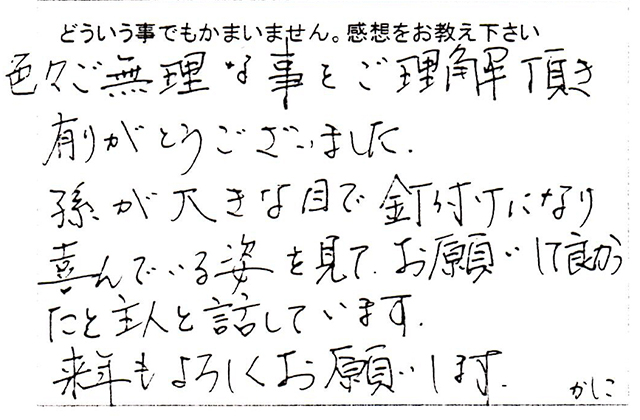 どういう事でもかまいません。感想をお教え下さい
色々ご無理な事をご理解頂き
有りがとうございました.
孫が大きな目で釘付けになり
喜んでいる姿を見て.お願いして良かっ
たと主人と話しています.
来年もよろしくお願いします.
かしこ